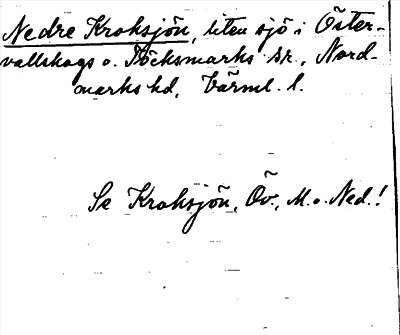 Nedre Kroksjön, liten sjö i Öster-
vallskogs o. Töcksmarks sn., Nord-
marks hd, Värml. l.
Se Kroksjön, Öv., M. o. Ned.!